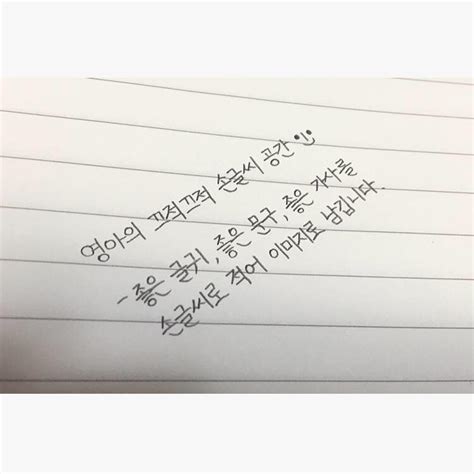 영아의 끄적끄적 손글씨 공간 :)
- 좋은 글귀, 좋은 문구, 좋은 가사를
손글씨로 적어 이미지로 남깁니다.